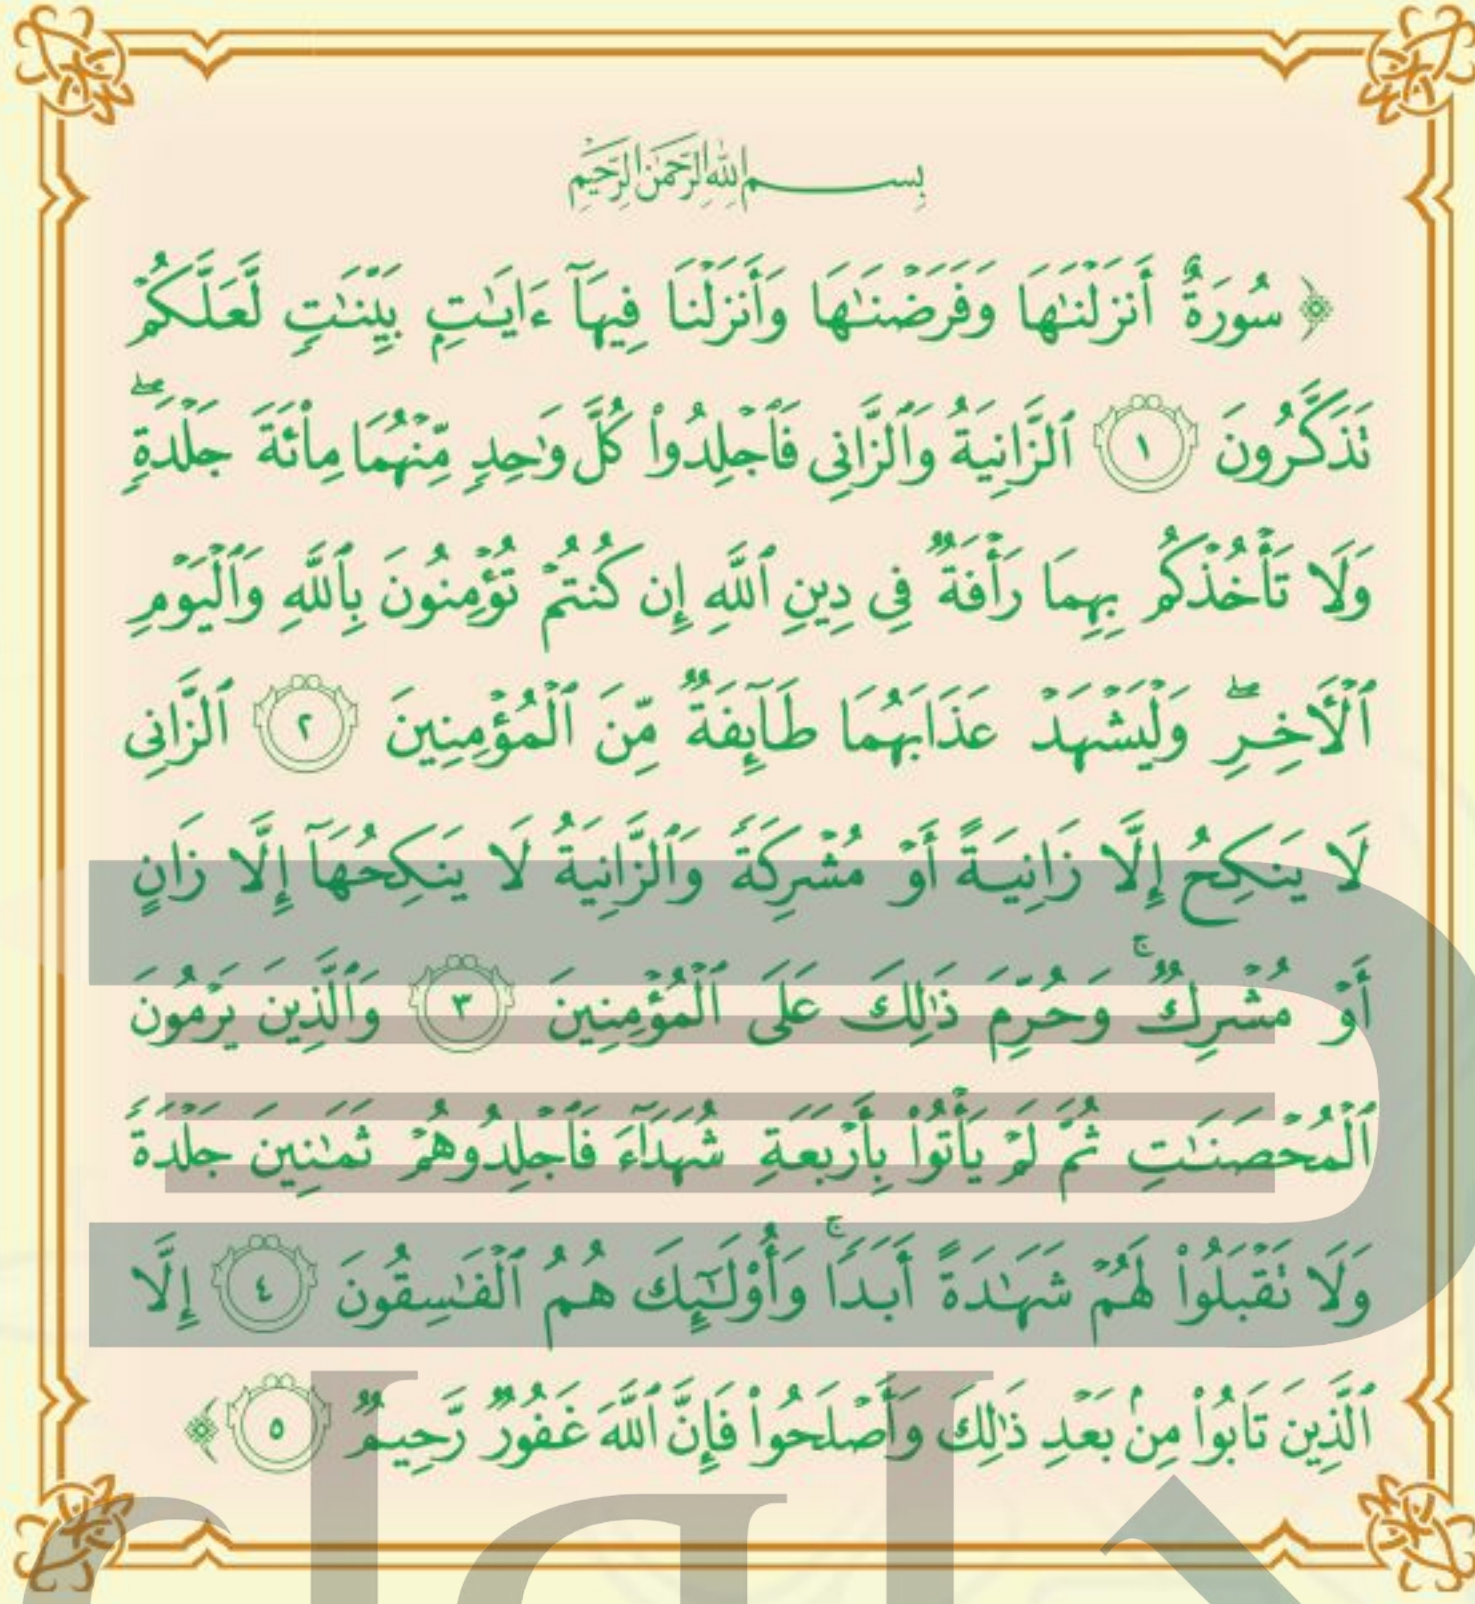 بِسْمِ اللَّهِ الرَّحْمَٰنِ الرَّحِيمِ
﴿ سُورَةٌ أَنزَلْنَٰهَا وَفَرَضْنَٰهَا وَأَنزَلْنَا فِيهَآ ءَايَٰتٍۭ بَيِّنَٰتٍ لَّعَلَّكُمْ
تَذَكَّرُونَ ١ ٱلزَّانِيَةُ وَٱلزَّانِى فَٱجْلِدُوا۟ كُلَّ وَٰحِدٍ مِّنْهُمَا مِا۟ئَةَ جَلْدَةٍ ۖ
وَلَا تَأْخُذْكُم بِهِمَا رَأْفَةٌ فِى دِينِ ٱللَّهِ إِن كُنتُمْ تُؤْمِنُونَ بِٱللَّهِ وَٱلْيَوْمِ
ٱلْأَخِرِ ۖ وَلْيَشْهَدْ عَذَابَهُمَا طَآئِفَةٌ مِّنَ ٱلْمُؤْمِنِينَ ٢ ٱلزَّانِى
لَا يَنكِحُ إِلَّا زَانِيَةً أَوْ مُشْرِكَةً وَٱلزَّانِيَةُ لَا يَنكِحُهَآ إِلَّا زَانٍ
أَوْ مُشْرِكٌ ۚ وَحُرِّمَ ذَٰلِكَ عَلَى ٱلْمُؤْمِنِينَ ٣ وَٱلَّذِينَ يَرْمُونَ
ٱلْمُحْصَنَٰتِ ثُمَّ لَمْ يَأْتُوا۟ بِأَرْبَعَةِ شُهَدَآءَ فَٱجْلِدُوهُمْ ثَمَٰنِينَ جَلْدَةً
وَلَا تَقْبَلُوا۟ لَهُمْ شَهَٰدَةً أَبَدًا ۚ وَأُو۟لَٰٓئِكَ هُمُ ٱلْفَٰسِقُونَ ٤ إِلَّا
ٱلَّذِينَ تَابُوا۟ مِنۢ بَعْدِ ذَٰلِكَ وَأَصْلَحُوا۟ فَإِنَّ ٱللَّهَ غَفُورٌ رَّحِيمٌ ٥ ﴾